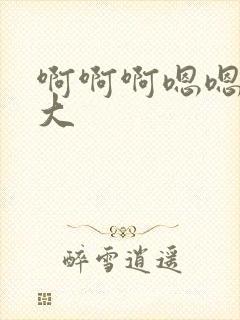 啊啊啊嗯嗯
大
醉雪逍遥